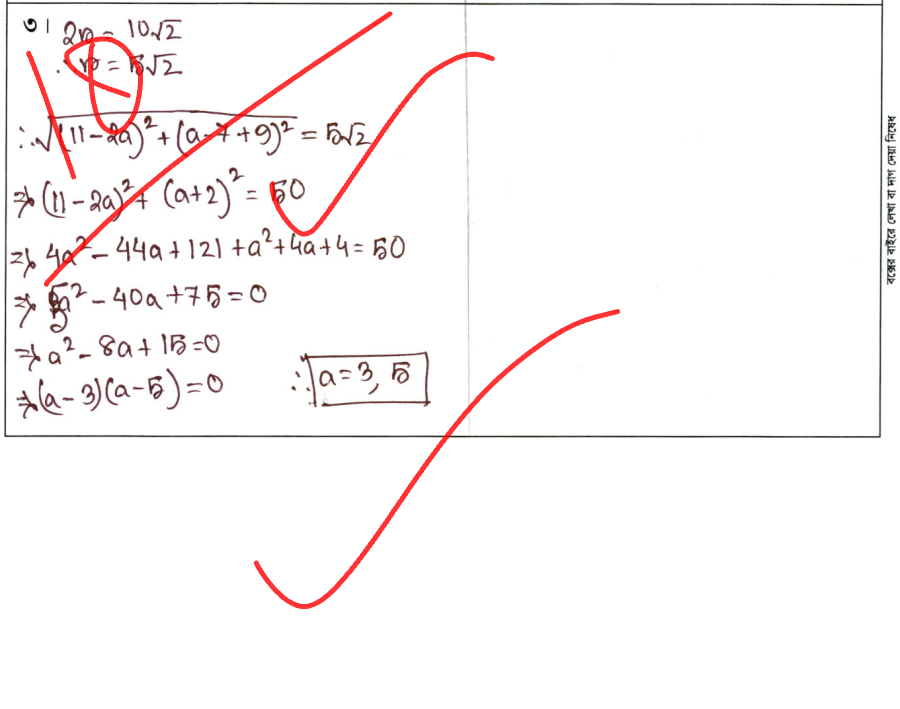 ৩। 2r = 10√2
∴ r = 5√2
∴ √(11-2a)² + (a-7+9)² = 5√2
⇒ (11-2a)² + (a+2)² = 50
⇒ 4a² - 44a + 121 + a² + 4a + 4 = 50
⇒ 5a² - 40a + 75 = 0
⇒ a² - 8a + 15 = 0
⇒ (a-3)(a-5) = 0
∴ a = 3, 5
বক্সের বাইরে লেখা বা দাগ দেয়া নিষেধ